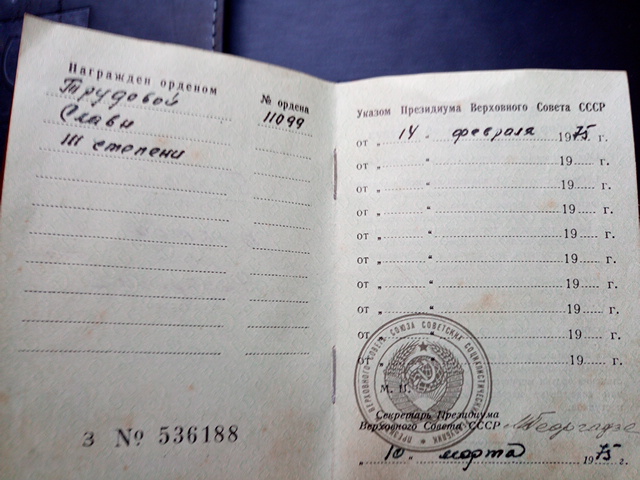 Награжден орденом
№ ордена
Трудовой
11099
Славы
III степени
З № 536188
Указом Президиума Верховного Совета СССР
от „ 14 “ февраля 1975 г.
от „ “ 19 г.
от „ “ 19 г.
от „ “ 19 г.
от „ “ 19 г.
от „ “ 19 г.
от „ “ 19 г.
от „ “ 19 г.
от „ “ 19 г.
от „ “ 19 г.
М. П.
Секретарь Президиума
Верховного Совета СССР М Георгадзе
„ 10 “ марта 1975 г.